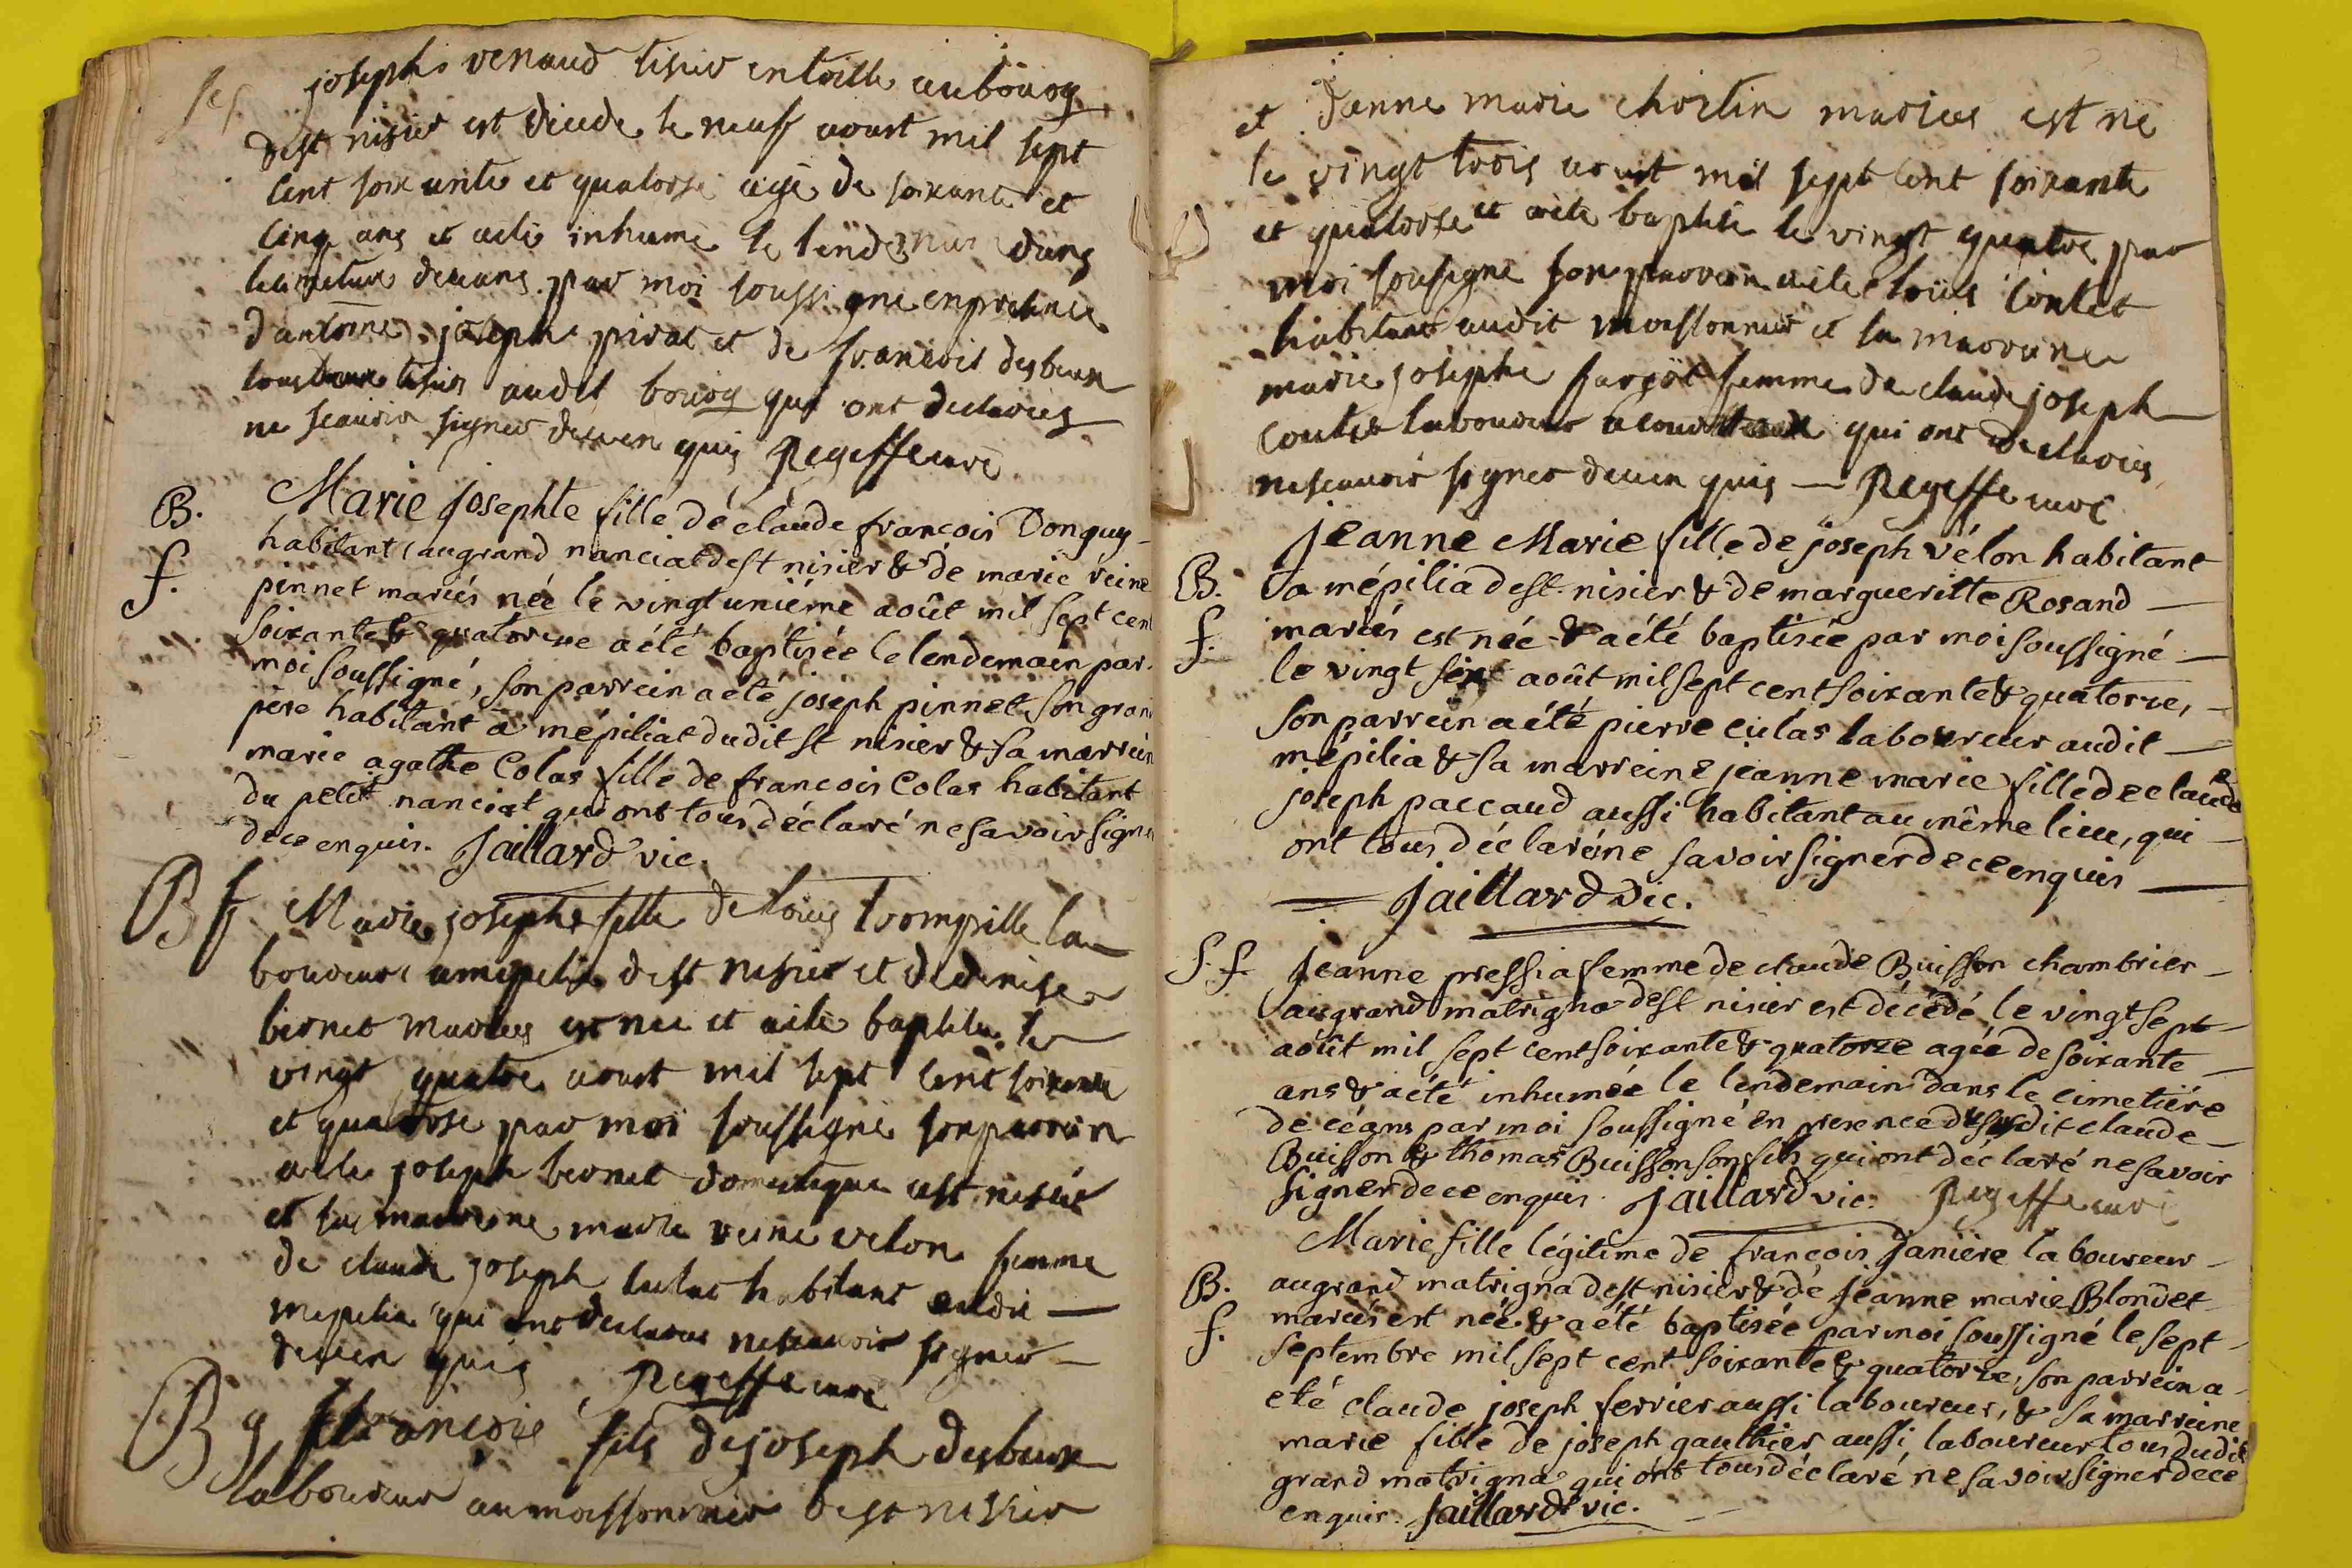 Sg. joseph venaud tisier entoille aubourg
dest nisier est décédé le neuf aoust mil sept
cent soixante et quatorse agé de soixante et
cinq ans et aété inhumé le lendemain dans
le cimetiere deceans par moi soussigné enpresence
dantoine joseph pirat et de francois desbeux
tous deux tisiers audit bourg qui ont declarés
ne scavoir signer dececn quis Regeffe curé
B. f. Marie josephte fille dé claude françois Donguy
habitant augrand nanciat dest nisier & dé marie reine
pinnet mariés née le vingtuniéme août mil sept cent
soixante & quatorze aété baptisée le lendemain par
moi soussigné, son parrein aété joseph pinnet son grand
père habitant à mépiliat dudit st nisier & sa marrein
marie agathe Colas fille de francois Colas habitant
du petit nanciat qui ont tous déclaré ne savoir signer
dece enquis. Jaillard vic.
B f Marie josephe fille de louis trompille la
boureur amepelia dest nisier et dedenise
bernet mariés est née et aété baptisée le
vingt quatre aoust mil sept cent soixante
et quatorse par moi soussigné son parrein
aété joseph bernet domestique ast nisier
et sa marreine marie reine velon femme
de claude joseph culas habitant audit
mepelia qui ont declarés nescavoir signer
deceen quis Regeffe curé
B g francois fils dejoseph desbeux
laboureur aumoissonnier dest nisier
et Janne marie chortin mariés est né
le vingt trois aoust mil sept cent soixante
et quatorse et aété baptisé le vingt quatre par
moi sousigné son parrein aété louis contet
habitant audit moissonnier et sa marreine
marie josephe farjot femme de claude joseph
coulis laboureur qui ont declarés
nescavoir signer deceen quis — Regeffe curé
B. f. Jeanne Marie fille de joseph vélon habitant
a mépilia dest. nisier & de margueritte Rosand
mariés est née & aété baptisée par moi soussigné
le vingt six août mil sept cent soixante & quatorze,
son parrein aété pierre culas laboureur audit
mépilia & sa marreine jeanne marie fille de claude
joseph paccaud aussi habitant au même lieu, qui
ont tous déclaré ne savoir signer dece enquis
Jaillard vic.
S. f. Jeanne pressia femme de claude Buisson chambrier
augrand matrigna dest nisier est décédé le vingt sept
août mil sept cent soixante & quatorze agée de soixante
ans & aété inhumée le lendemain dans le cimetiére
de céans par moi soussigné en presence dususdit claude
Buisson & thomas Buisson son fils qui ont déclaré ne savoir
signer dece enquis. Jaillard vic. Regeffe curé
Marie fille légitime de françois Janiére laboureur
B. f. augrand matrigna dest nisier & dé jeanne marie Blondet
mariés est née & aété baptisée par moi soussigné le sept
septembre mil sept cent soixante & quatorze, son parrein a
eté claude joseph ferrier aussi laboureur, & sa marreine
marie fille de joseph gauthier aussi laboureur tous dudit
grand matrigna qui ont tous déclaré ne savoir signer dece
enquis. Jaillard vic.